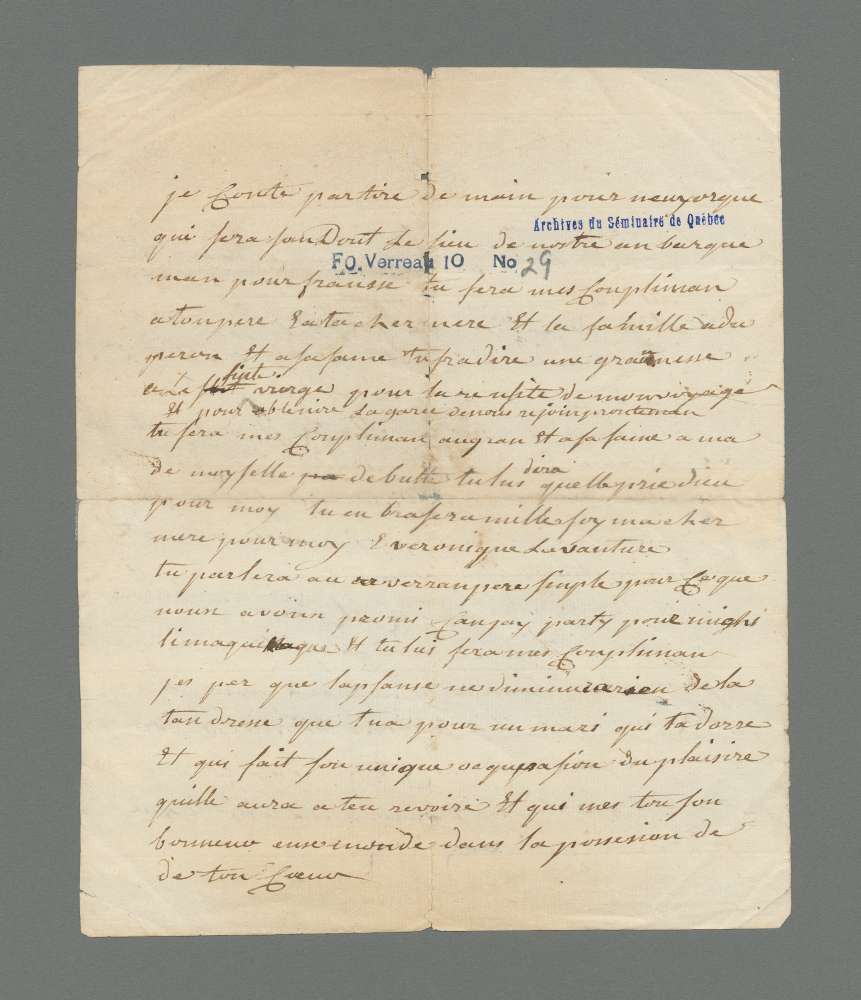 je Conte partire de main pour neuyorque
Archives du Séminaire de Québec
qui sera sans Dout Le lieu de nostre anbarque
FO. Verreau 10 No 29
man pour fransse tu fera mes Conpliman
a ton pere & a ta cher mere Et la famille adu
peron Et a sa fame tu fra dire une grannesse
a la sinte vierge pour la reusite de mon voyage
Et pour obtenire La grace de nous rejoin pronteman
tu fera mes Conpliman au gran Et a sa fame a ma
de moyselle de butte tu lui dira quelle prie dieu
pour moy tu en brasera mille foy ma cher
mere pour moy & veronique Lavanture
tu parlera au reverran pere sinple pour Ce que
nous avons promi Can jay party pour michi
limaquinaque Et tu lui fera mes Conpliman
jes per que lapsanse ne diminura rien de la
tandresse que tu a pour un mari qui tadorre
Et qui fait son unique ocqupasion du plaisire
quille aura a teu revoire Et qui mes tou son
bonneur en se monde dans la possesion de
de ton Coeur